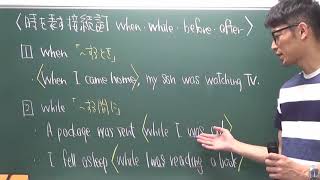 〈時を表す接続詞 when・while・before・after〉
1 when 「〜するとき」
〈when I came home〉, my son was watching TV.
2 while 「〜する間に」
・A package was sent 〈while I was
・I fell asleep 〈while I was reading a book〉